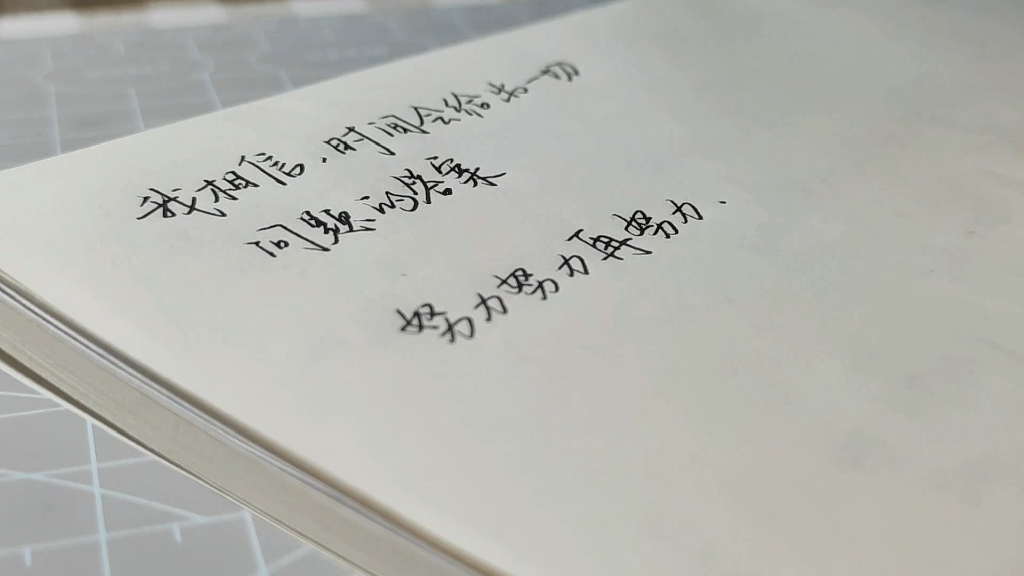 我相信，时间会给出一切
问题的答案
努力努力再努力.